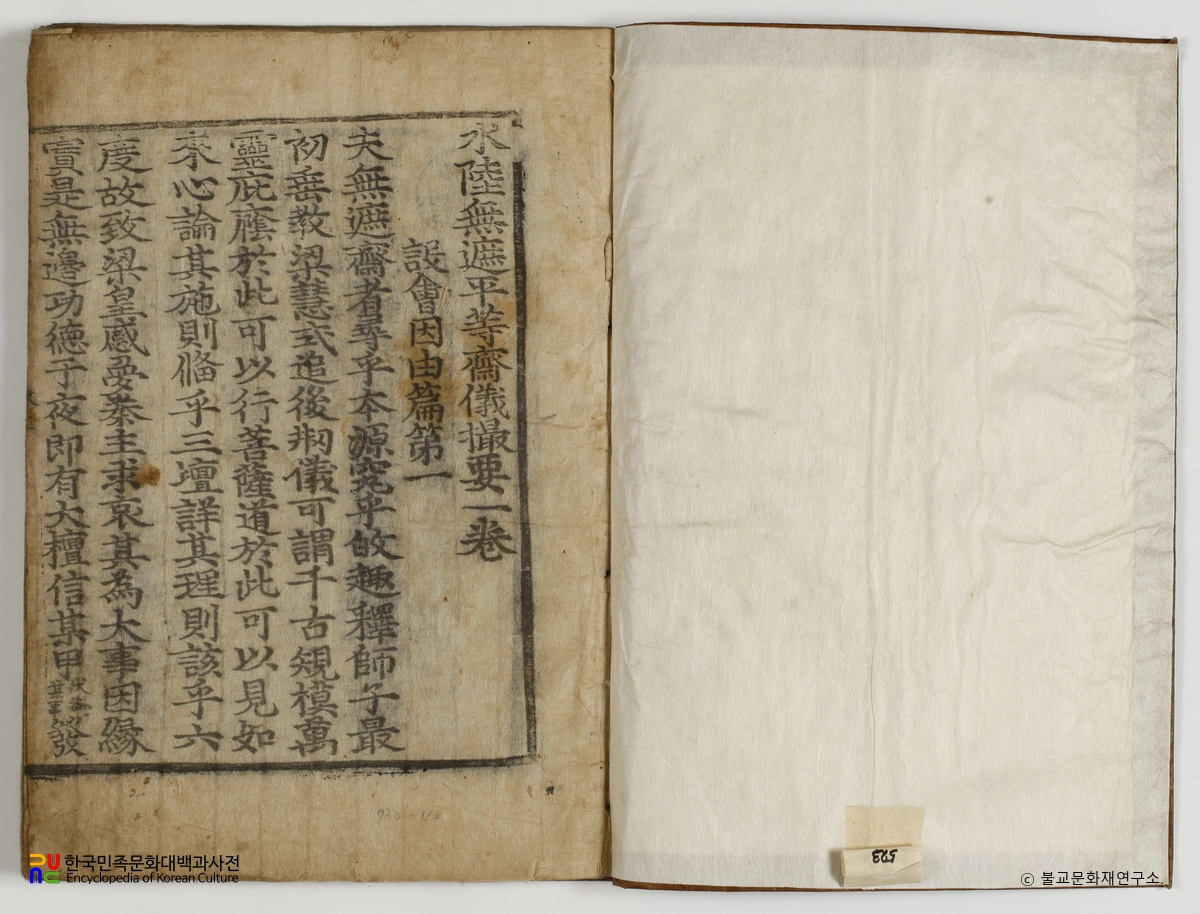 水陸無遮平等齋儀撮要一卷
設會因由篇第一
夫無遮齋者尋乎本源究乎的趣釋師子最
初垂教梁慧式追後刱儀可謂千古䂓模萬
靈庇廕於此可以行菩薩道於此可以見如
來心論其施則俻乎三壇詳其理則該乎六
度故致梁皇感妟秦主求哀其為大事因緣
實是無邊功德子夜即有大檀信某甲
發
523
한국민족문화대백과사전
Encyclopedia of Korean Culture
ⓒ 불교문화재연구소.